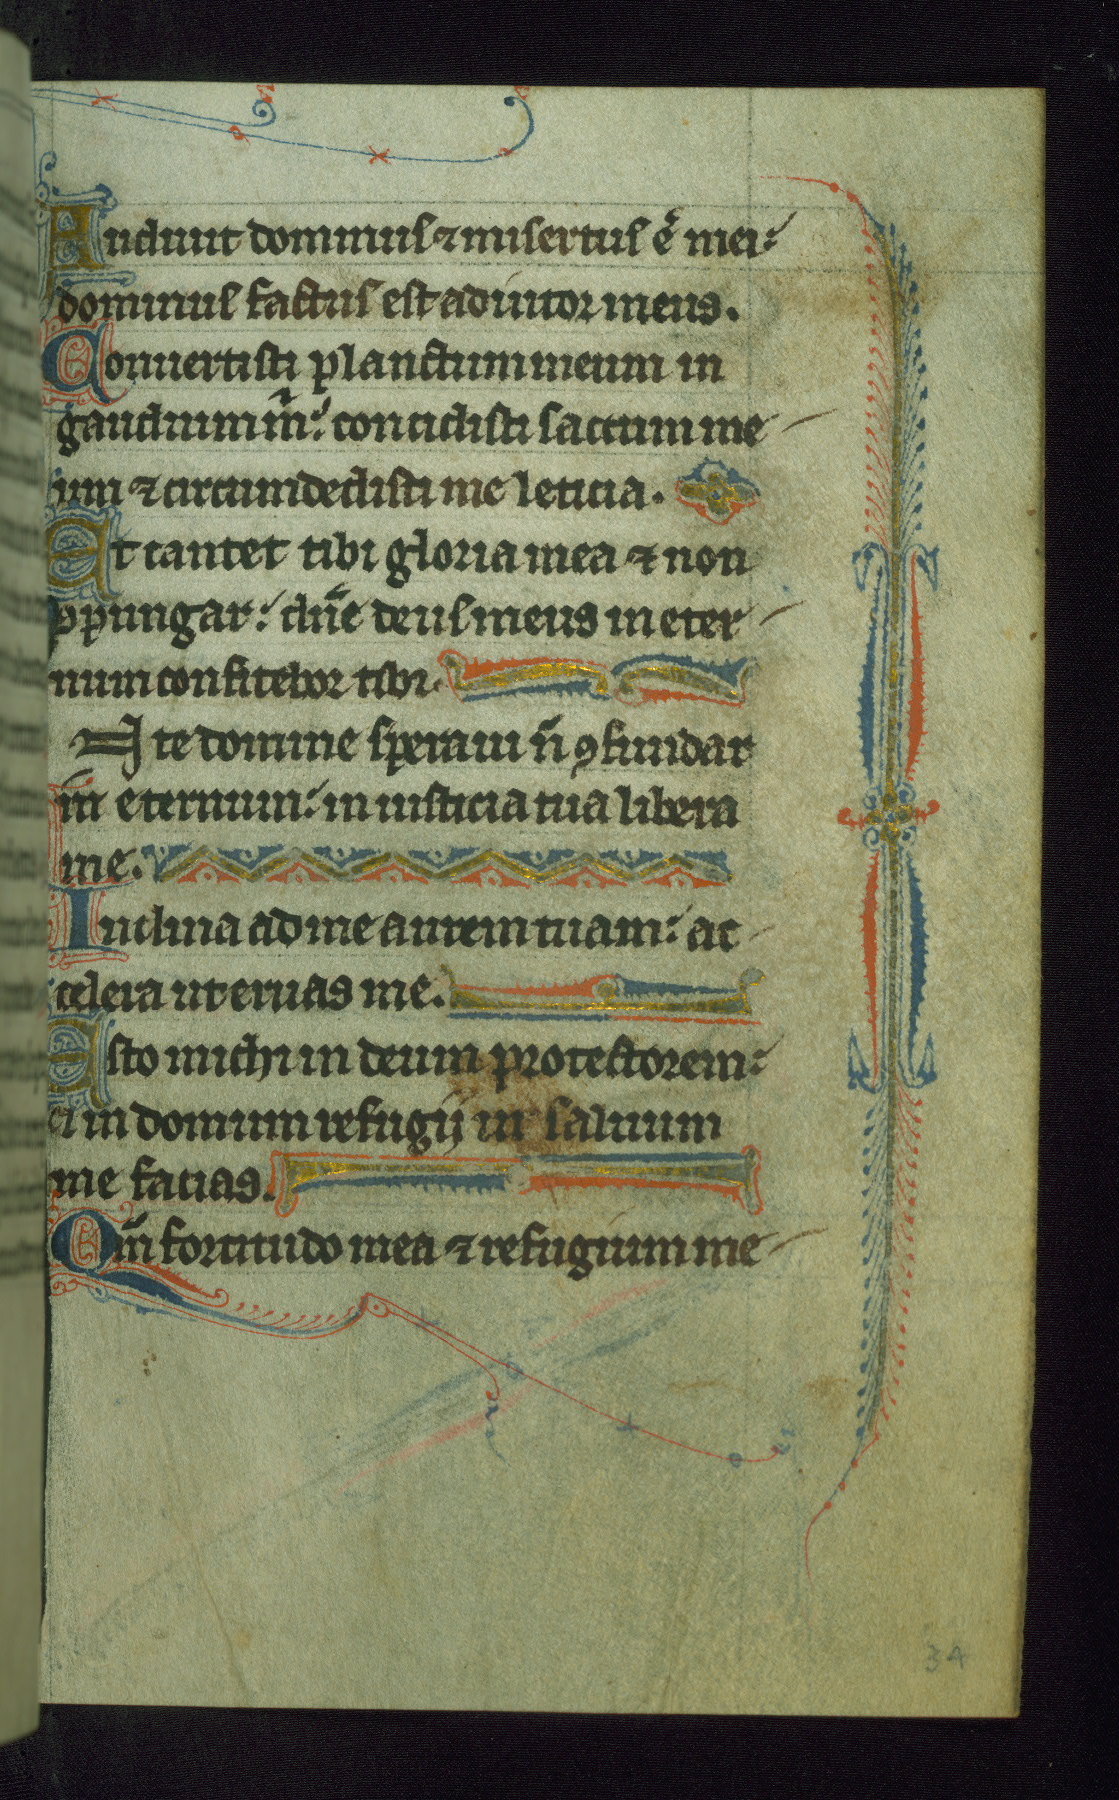 Audiuit dominus ⁊ misertus ē mei:
dominus factus est adiutor meus.
Conuertisti planctum meum in
gaudium m̄: concidisti saccum me
um ⁊ circumdedisti me leticia.
Et cantet tibi gloria mea ⁊ non
9pungar: dn̄e deus meus in eter
num confitebor tibi.
In te domine speraui n̄ 9fundar
in eternum: in iusticia tua libera
me.
Inclina ad me aurem tuam: ac
celera ut eruas me.
Esto michi in deum protectorem:
et in domum refugij ut saluum
me facias.
Qm̄ fortitudo mea ⁊ refugium me
34